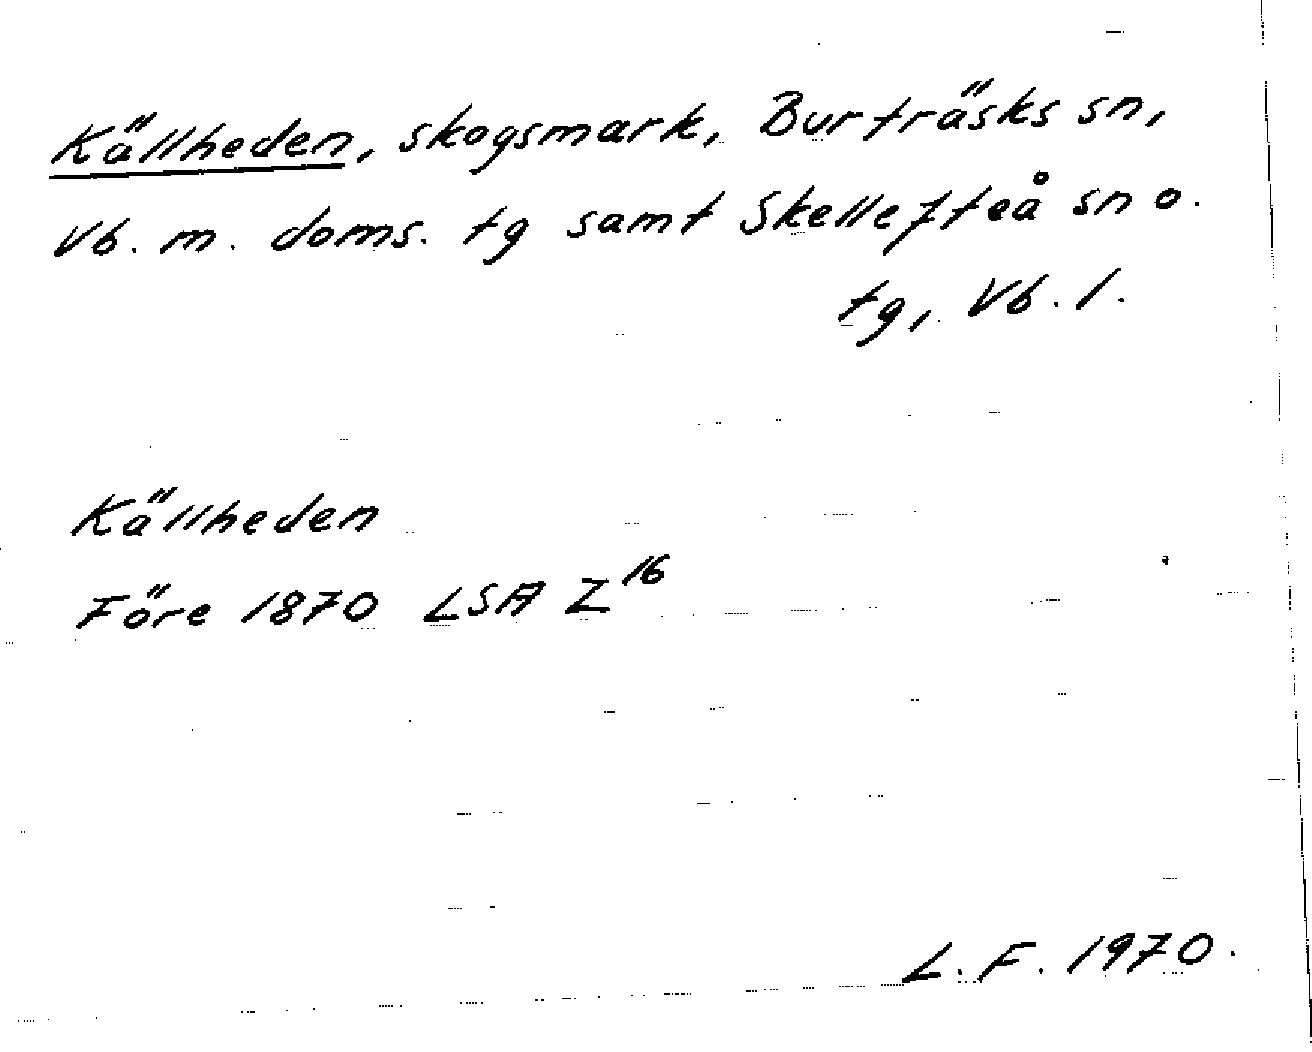 Källheden, skogsmark, Burträsks sn,
Vb. m. doms. tg samt Skellefteå sn o.
tg, Vb. l.
Källheden
Före 1870 LSA Z¹⁶
L. F. 1970.